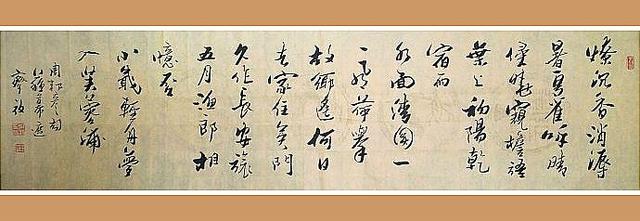 燎沉香消溽
暑鳥雀呼晴
侵曉窺檐語
葉上初陽乾
宿雨
水面清圓一
一風荷舉
故鄉遥何日
去家住吳門
久作長安旅
五月漁郎相
憶否
小楫輕舟夢
入芙蓉浦
周邦彦詞
蘇幕遮